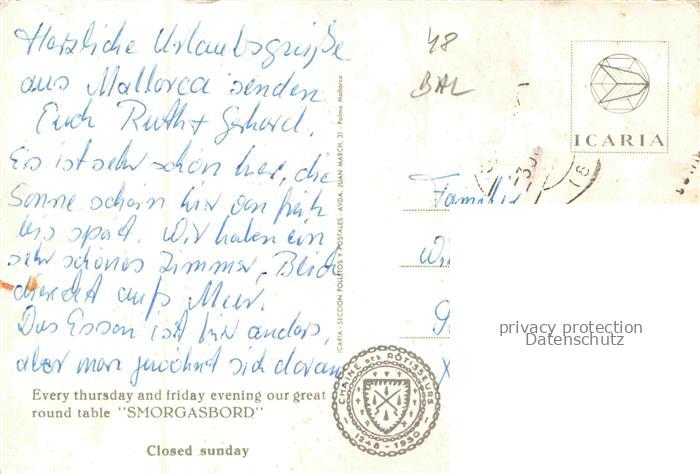 Herzliche Urlaubsgrüße
aus Mallorca senden
Euch Ruth + Gerhard.
Es ist sehr schön hier, die
Sonne schein hir von früh
bis spät. Wir haben ein
sehr schönes Zimmer, Blick
direkt aufs Meer.
Das Essen ist hir anders,
aber man gewöhnt sich daran
Every thursday and friday evening our great
round table "SMORGASBORD"
Closed sunday
ICARIA - SECCION FOLLETOS Y POSTALES - AVDA. JUAN MARCH, 21 - Palma Mallorca
CHAINE DES RÔTISSEURS
- 1248 - 1950 -
48
BAL
ICARIA
18
Familie
privacy protection
Datenschutz